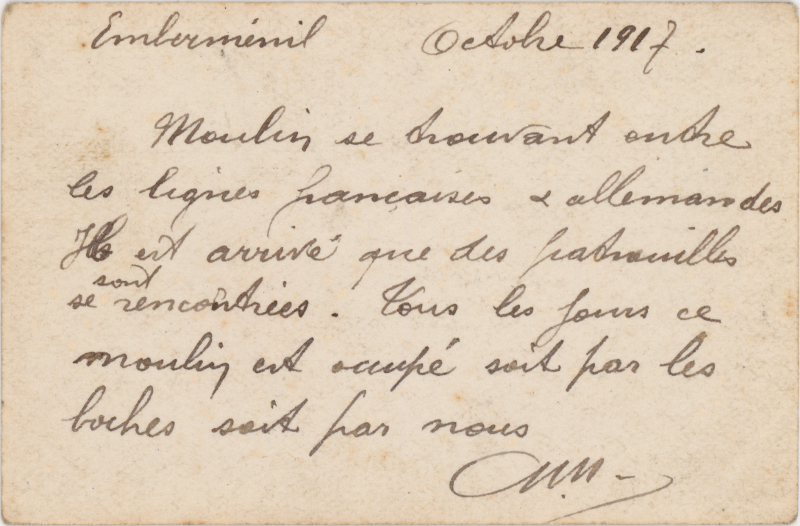 Emberménil Octobre 1917.
Moulin se trouvant entre
les lignes françaises & allemandes
Il est arrivé que des patrouilles
se sont rencontrées. Tous les jours ce
moulin est ocupé soit par les
boches soit par nous